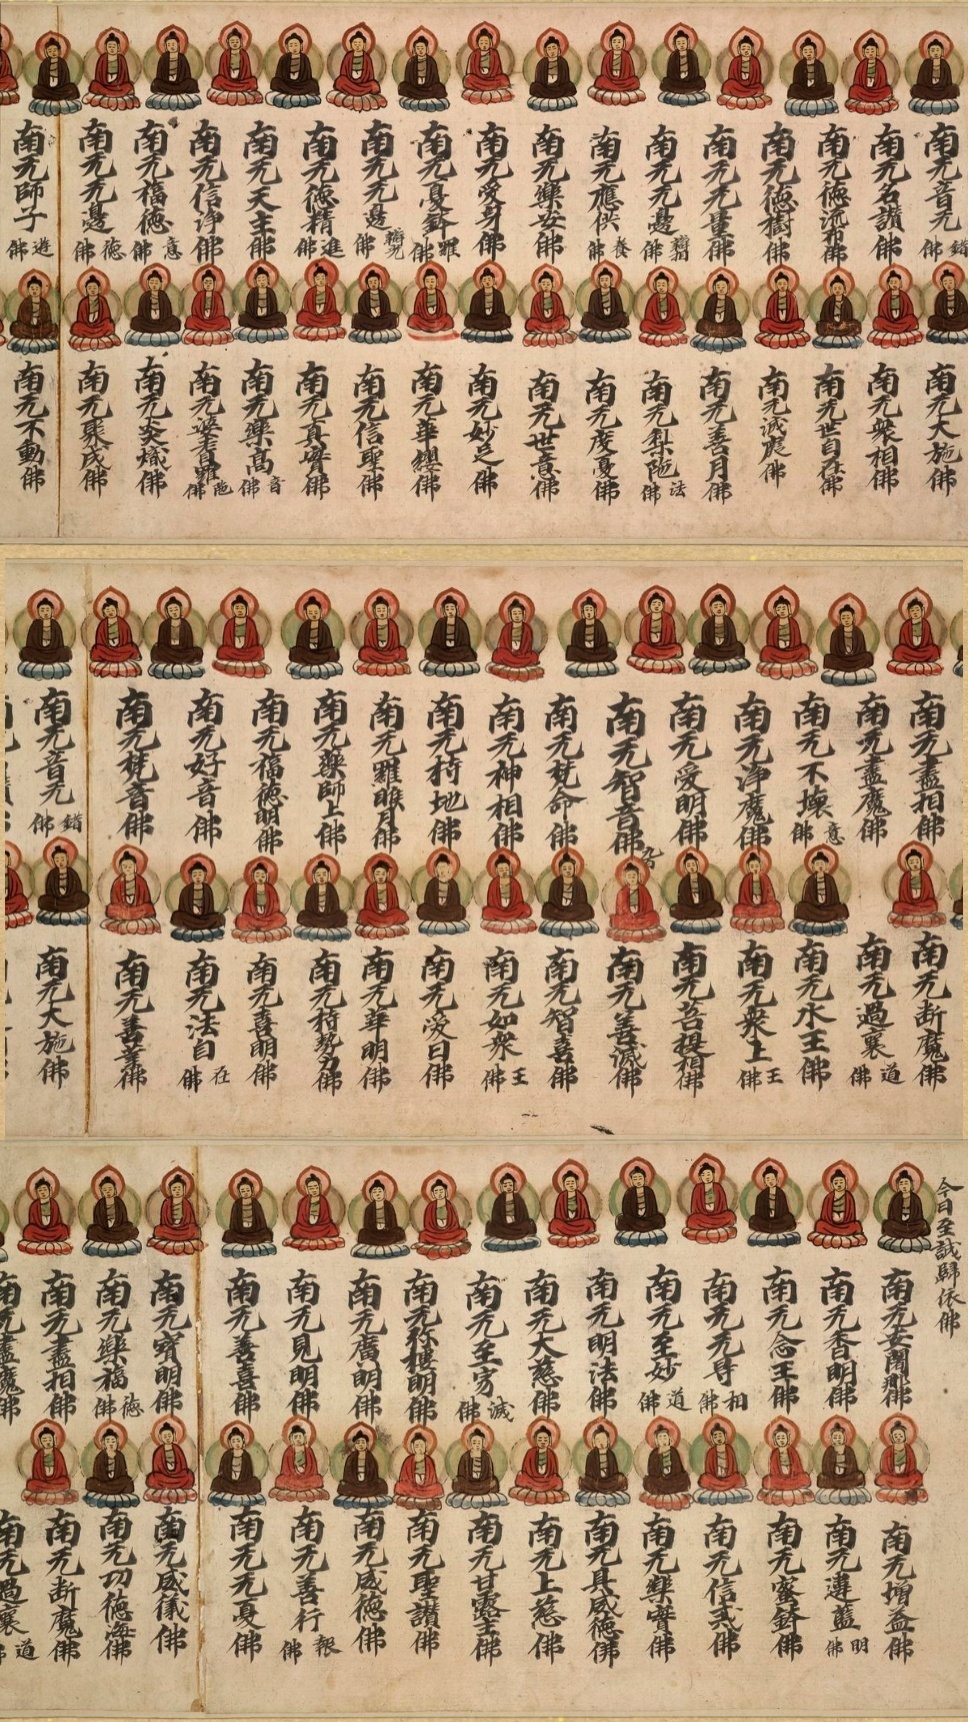 南无音无錯佛
南无名讃佛
南无德流布佛
南无德樹佛
南无无量佛
南无无邊辯佛
南无應供養佛
南无樂安佛
南无愛身佛
南无憂鉢羅佛
南无无邊辯光佛
南无德精進佛
南无天主佛
南无信淨佛
南无福德意佛
南无无邊德佛
南无師子遊佛
南无大施佛
南无衆相佛
南无世自在佛
南无滅佛
南无善月佛
南无梨陁法佛
南无度憂佛
南无世意佛
南无妙足佛
南无華纓佛
南无信聖佛
南无真實佛
南无樂高音佛
南无婆耆羅陁佛
南无炎熾佛
南无聚成佛
南无不動佛
南无盡相佛
南无盡魔佛
南无不壞意佛
南无淨魔佛
南无愛明佛
南无智音佛
南无梵命佛
南无神相佛
南无持地佛
南无羅睺月佛
南无藥師上佛
南无福德明佛
南无好音佛
南无梵音佛
南无音无錯佛
南无斷魔佛
南无過衰道佛
南无水王佛
南无衆上王佛
南无菩提相佛
南无善滅佛
南无智喜佛
南无如衆王佛
南无愛日佛
南无華明佛
南无持勢力佛
南无喜明佛
南无法自在佛
南无善業佛
南无大施佛
今日至誠歸依佛
南无安闍那佛
南无香明佛
南无念王佛
南无无㝵相佛
南无至妙道佛
南无明法佛
南无大慈佛
南无至寂滅佛
南无弥樓明佛
南无廣明佛
南无見明佛
南无善喜佛
南无寶明佛
南无樂福德佛
南无盡相佛
南无盡魔佛
南无增益佛
南无違藍明佛
南无蜜鉢佛
南无信戒佛
南无樂實佛
南无具威德佛
南无上慈佛
南无甘露主佛
南无聖讃佛
南无威德佛
南无善行報佛
南无无憂佛
南无威儀佛
南无功德海佛
南无斷魔佛
南无過衰道佛